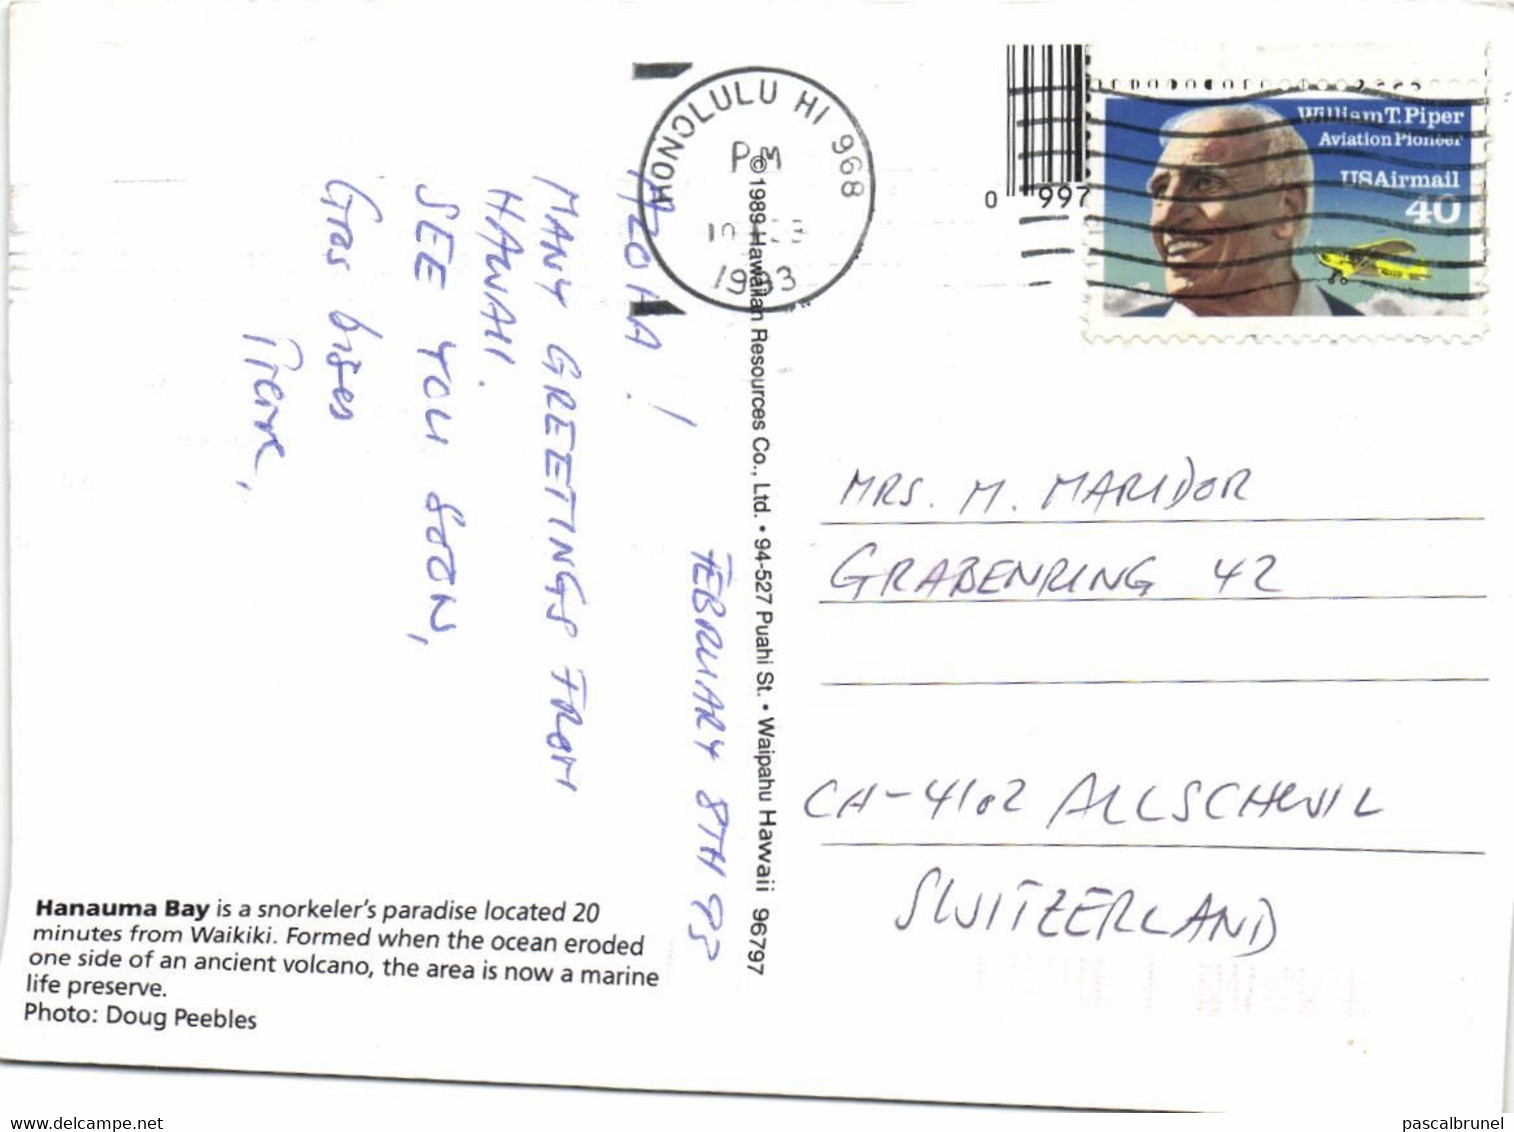 HONOLULU HI 968
PM
1993
0 997
William T. Piper
Aviation Pioneer
USAirmail
40
FEBRUARY 8TH 93
ALOHA!
MANY GREETINGS FROM
HAWAII.
SEE YOU SOON,
Gros bises
Pierre,
© 1989 Hawaiian Resources Co., Ltd. • 94-527 Puahi St. • Waipahu Hawaii 96797
MRS. M. MARIDOR
GRABENRING 42
CH-4102 ALLSCHWIL
SWITZERLAND
Hanauma Bay is a snorkeler's paradise located 20
minutes from Waikiki. Formed when the ocean eroded
one side of an ancient volcano, the area is now a marine
life preserve.
Photo: Doug Peebles
www.delcampe.net
pascalbrunel